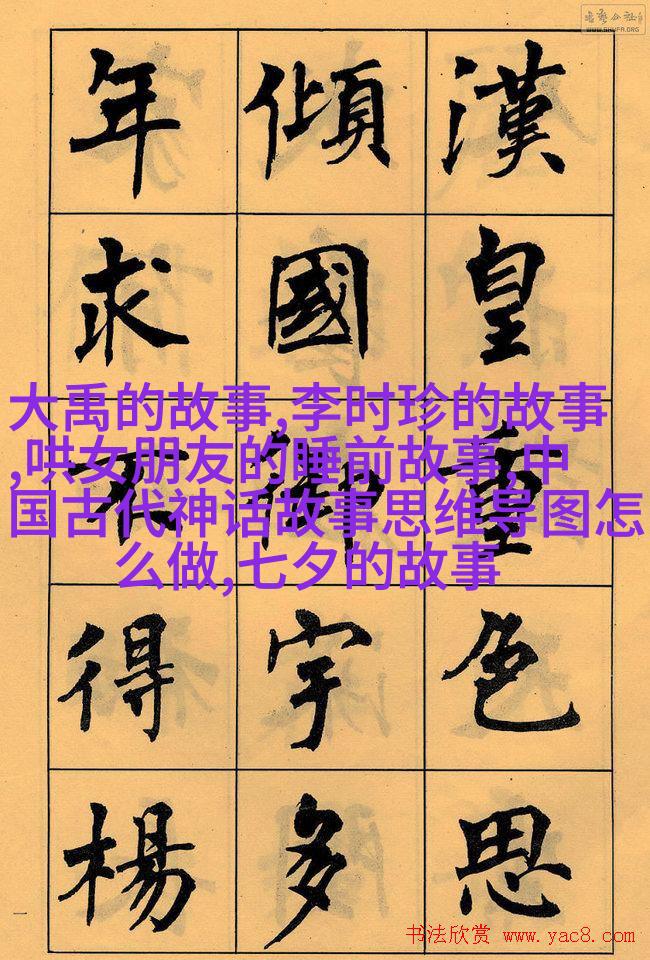 WWW.SHUFA.ORG
漢皇重色思
傾國御宇多
年求不得楊
大禹的故事,李时珍的故事
,哄女朋友的睡前故事,中
国古代神话故事思维导图怎
么做,七夕的故事
一
书法欣赏 www.yac8.com